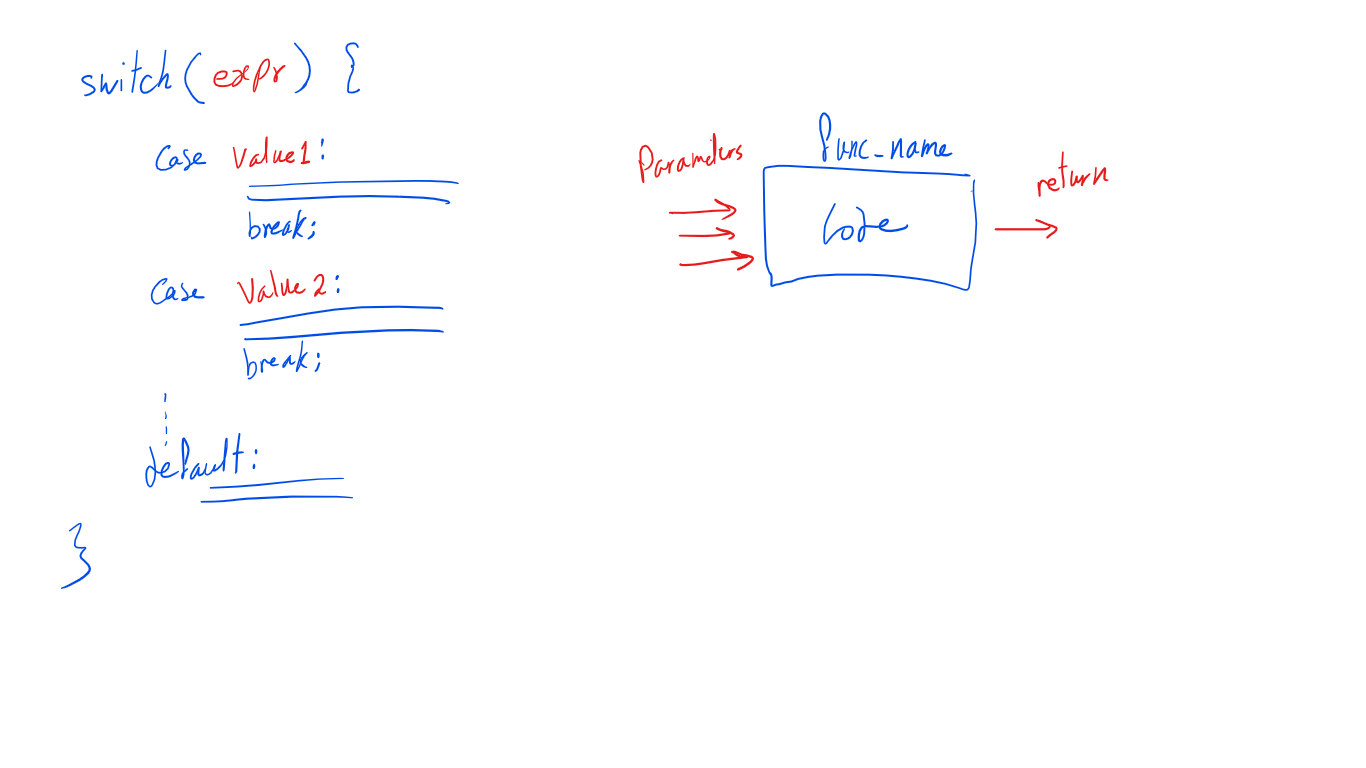 switch(expr) {
case value1:
break;
case value2:
break;
default:
}
Parameters
func_name
code
return